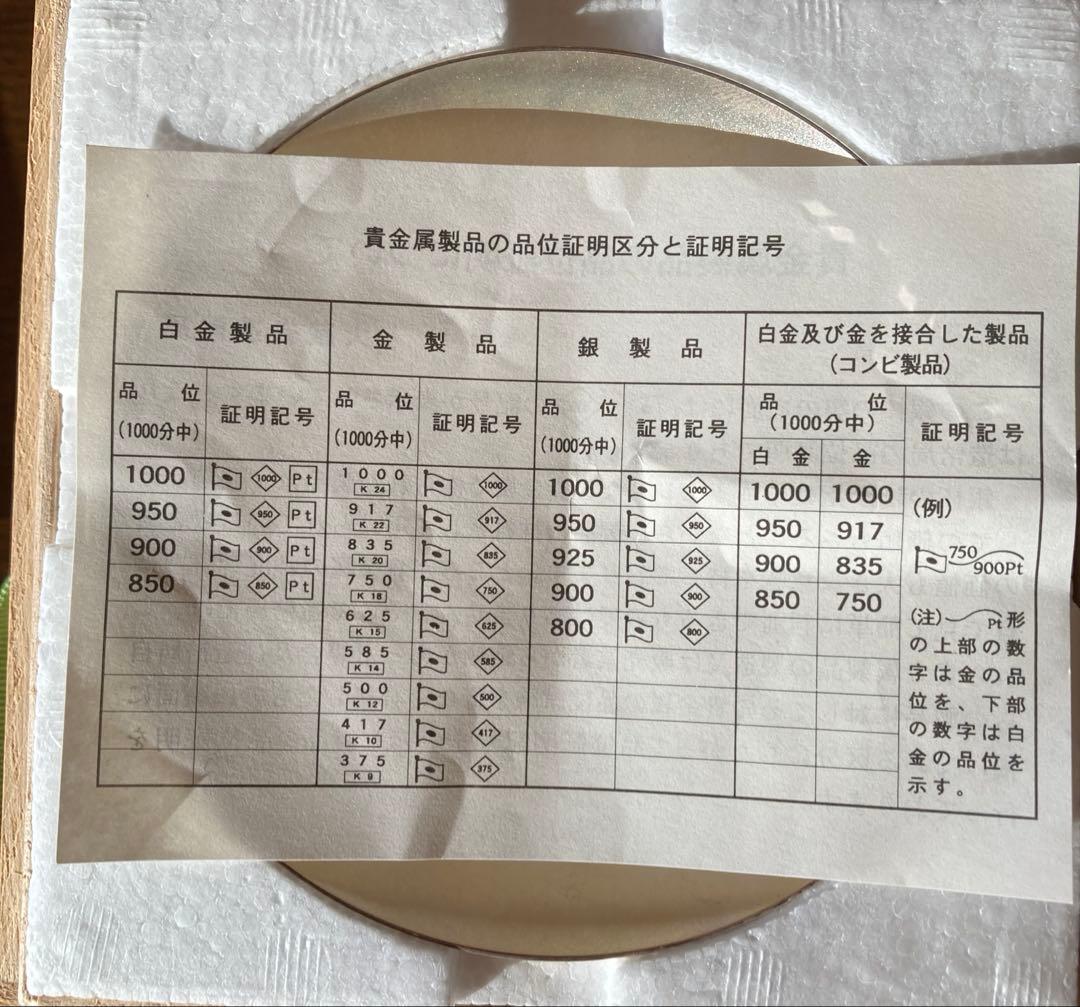 貴金属製品の品位証明区分と証明記号
白金製品 金製品 銀製品 白金及び金を接合した製品
(コンビ製品)
品位 証明記号 品位 証明記号 品位 証明記号 品位 証明記号
(1000分中) (1000分中) (1000分中) (1000分中)
白金 金
1000 1000 Pt 1000 1000 1000 1000 1000 1000
K 24
950 950 Pt 917 917 950 950 950 917
K 22
900 900 Pt 835 835 925 925 900 835
K 20
850 850 Pt 750 750 900 900 850 750
K 18
625 625 800 800
K 15
585 585
K 14
500 500
K 12
417 417
K 10
375 375
K 9
(例)
750
900Pt
(注) Pt形
の上部の数
字は金の品
位を、下部
の数字は白
金の品位を
示す。